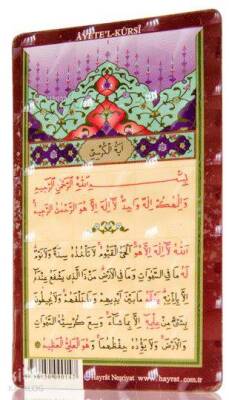 ÂYETE'L-KÜRSÎ
اٰيَةُ الْكُرْسِيِّ
بِسْمِ اللّٰهِ الرَّحْمٰنِ الرَّحِيمِ
وَاِلٰهُكُمْ اِلٰهٌ وَاحِدٌ لَٓا اِلٰهَ اِلَّا هُوَ الرَّحْمٰنُ الرَّحِيمُ
اَللّٰهُ لَٓا اِلٰهَ اِلَّا هُوَ اَلْحَيُّ الْقَيُّومُ لَا تَأْخُذُهُ سِنَةٌ وَلَا نَوْمٌ
لَهُ مَا فِي السَّمٰوَاتِ وَمَا فِي الْاَرْضِ مَنْ ذَا الَّذِي يَشْفَعُ عِنْدَهُ
اِلَّا بِاِذْنِهِ يَعْلَمُ مَا بَيْنَ اَيْدِيهِمْ وَمَا خَلْفَهُمْ وَلَا يُحِيطُونَ
بِشَيْءٍ مِنْ عِلْمِهِ اِلَّا بِمَا شَٓاءَ وَسِعَ كُرْسِيُّهُ السَّمٰوَاتِ
وَالْاَرْضَ وَلَا يَؤُ۫دُهُ حِفْظُهُمَا وَهُوَ الْعَلِيُّ الْعَظِيمُ
Hayrât Neşriyat www.hayrat.com.tr